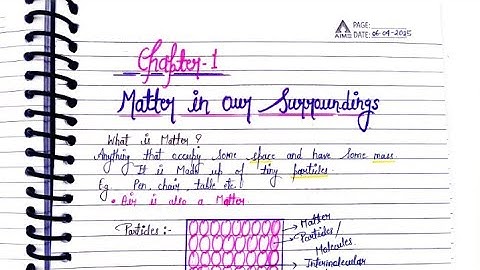 AIMS
PAGE:
DATE: 06-04-2025
Chapter-1
Matter in our Surroundings
What is Matter?
Anything that occupy some space and have some mass.
It is Made up of tiny particles.
Eg. Pen, chair, table etc.
• Air is also a Matter.
Particles :-
Matter
Particles/
Molecules
Intermolecular